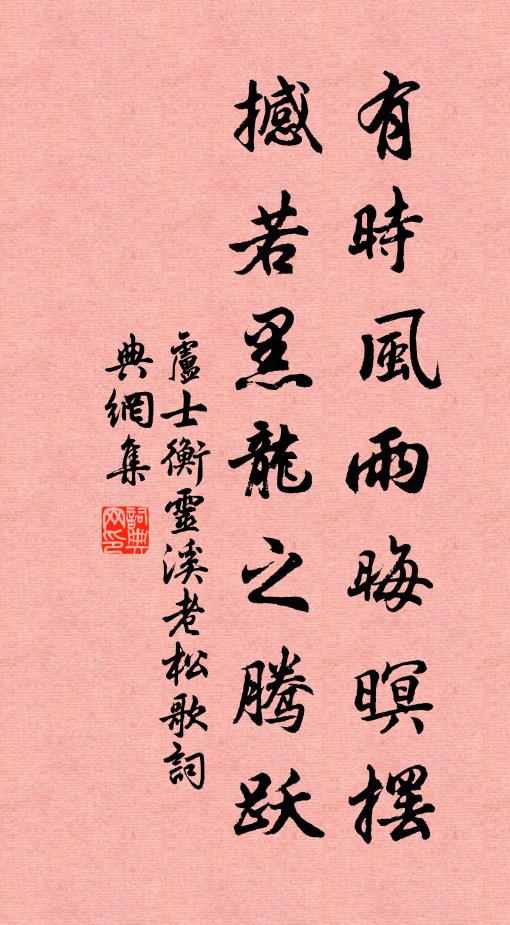 有時風雨晦暝擺
撼若黑龍之騰跃
盧士衡靈溪老松歌詞
典網集
詞典
网印